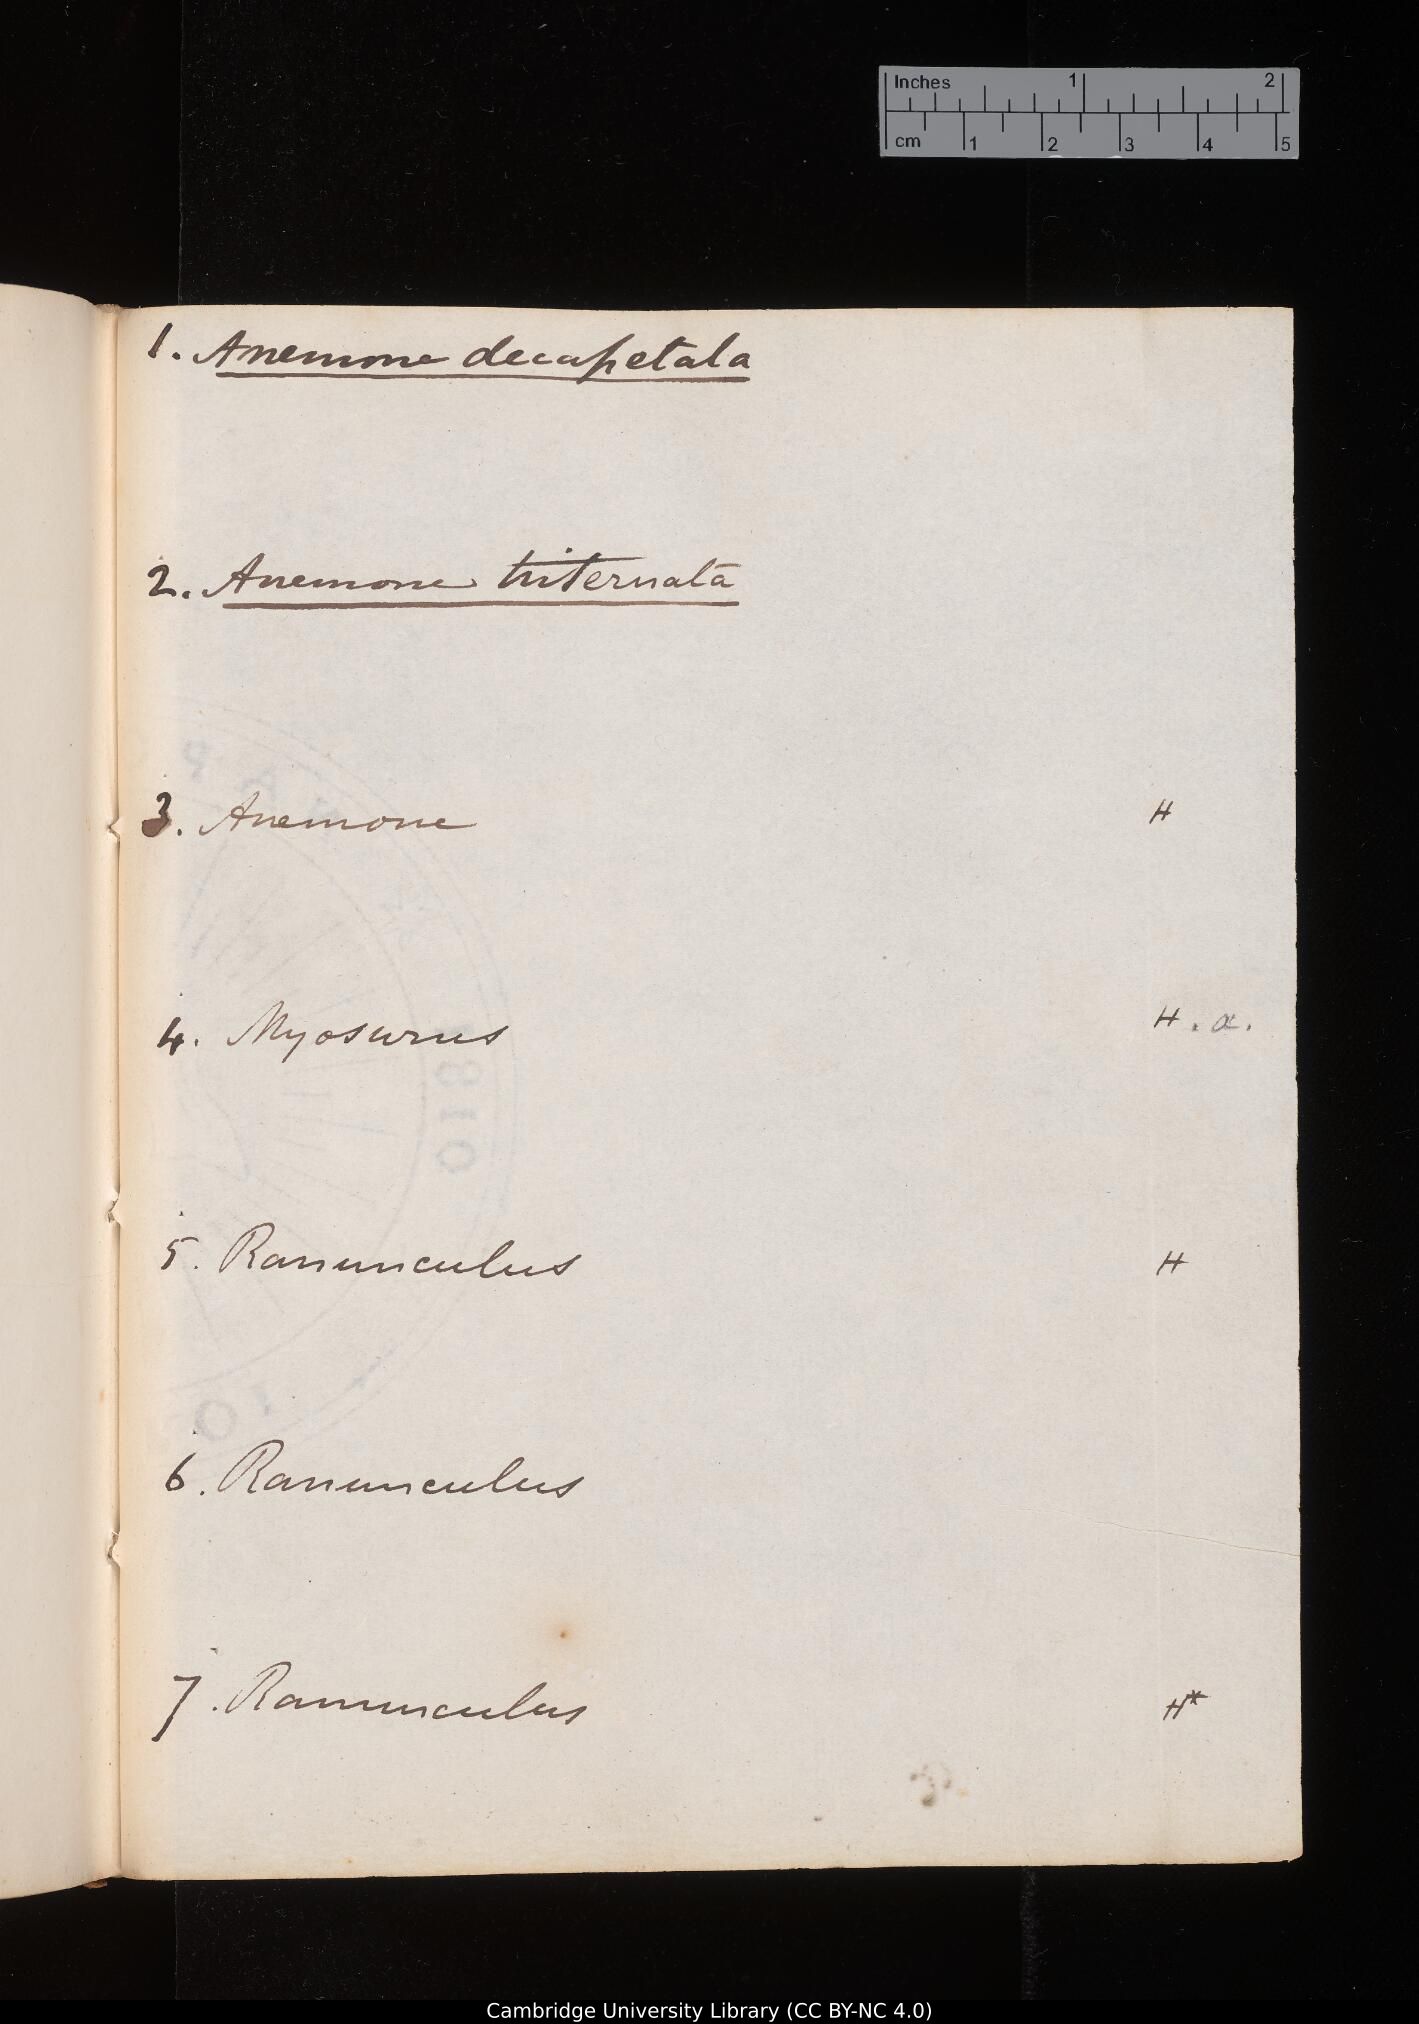 Inches 1 2
cm 1 2 3 4 5
1. Anemone decapetala
2. Anemone triternata
3. Anemone H
4. Myosurus H . a.
5. Ranunculus H
6. Ranunculus
7. Ranunculus H*
Cambridge University Library (CC BY-NC 4.0)